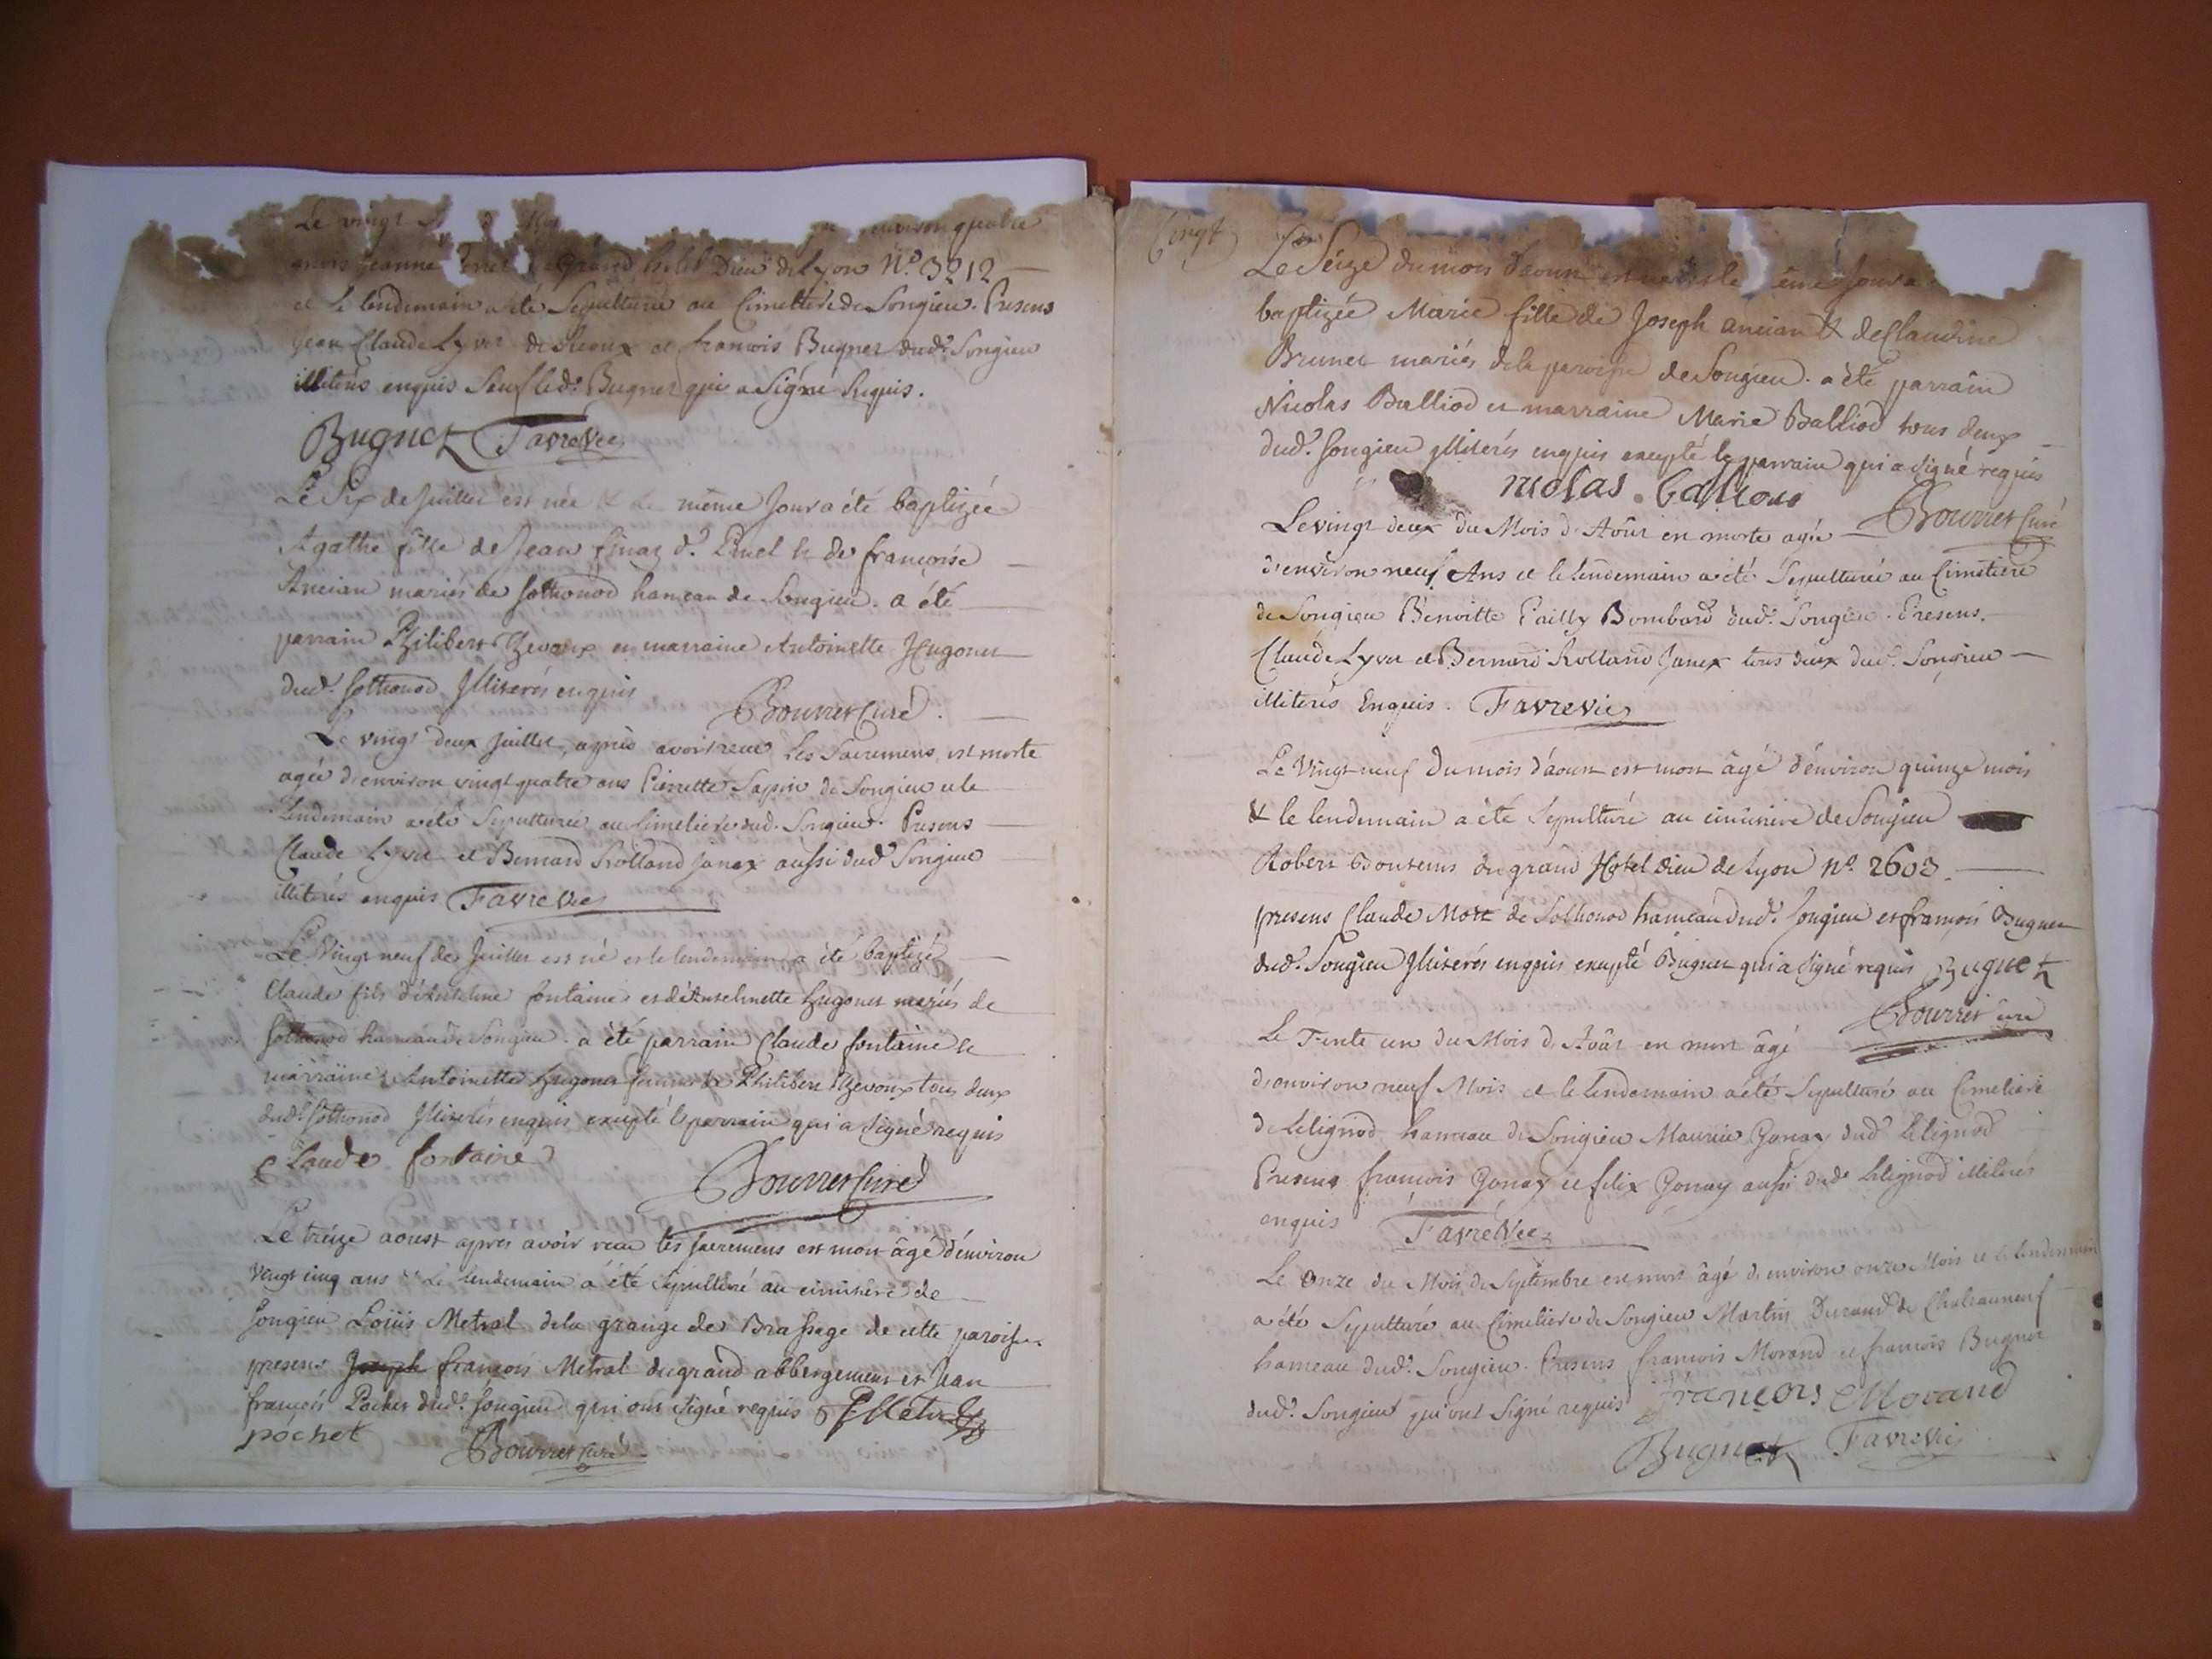 Le vingt
environ quatre
Jeanne grand hotel Dieu de Lyon N.º 3212
et le lendemain a été Sepulturée au Cimettere de Songieu. Presens
Jean Claude Lyvet de et francois Bugnet dud.t Songieu
illiterés enquis Sauf led.t Bugnet qui a Signé Requis.
Bugnet Favre Vic
Le Six de Juillet est née & le même Jour a été baptizée
Agathe fille de Jean finaz d.t Pinel & de françoise
Ancian mariés de Sothonod hameau de Songieu. a été
parrain Philibert Gevoux et marraine Antoinette Hugonet
dud.t Sothonod Illiterés enquis
Bourret Curé.
Le vingt deux Juillet, après avoir reçu les Sacremens est morte
agée d'environ vingt quatre ans Pierrette Sapin de Songieu et le
lendemain a été Sepulturée au Cimetiere dud. Songieu. Presens
Claude Lyvet et Bernard Rolland Janex aussi dud.t Songieu
illiterés enquis Favre Vic
Le Vingt neuf de Juillet est né et le lendemain a été baptizé
Claude fils d'Anthelme fontaine et d'Anthelmette Hugonet mariés de
Sothonod hameau de Songieu. a été parrain Claude fontaine &
marraine Antoinette Hugonet femme de Philibert Gevoux tous deux
dud.t Sothonod Illiterés enquis excepté le parrain qui a Signé requis
Claude fontaine
Bourret Curé
Le treize aoust apres avoir reçu les Sacremens est mort âgé d'environ
Vingt cinq ans & le lendemain a été Sepulturé au cimitière de
Songieu Loüis Metral de la grange de Brassage de cette paroisse.
presens Joseph françois Metral du grand abbergement et Jean
françois Pochet dud.t Songieu qui ont Signé requis F Metral
pochet
Bourret Curé
Vingt
Le Seize du mois d'aoust est née & le même Jour a
baptizée Marie fille de Joseph ancian & de Claudine
Brunet mariés de la paroisse de Songieu. a été parrain
Nicolas Balliod et marraine Marie Balliod tous deux
dud.t Songieu Illiterés enquis excepté le parrain qui a Signé requis
nicolas.
Bourret Curé
Le vingt deux du Mois d'Août est morte agée
d'environ neuf Ans et le lendemain a été Sepulturée au Cimetiere
de Songieu Benoitte Pailly Bombard dud.t Songieu. Presens.
Claude Lyvet et Bernard Rolland Janex tous deux dud.t Songieu
illiterés Enquis. Favre Vic
Le Vingt neuf du mois d'aoust est mort âgé d'environ quinze mois
& le lendemain a été Sepulturé au cimitière de Songieu
Robert du grand Hotel Dieu de Lyon N.º 2603.
presens Claude Mort de Sothonod hameau dud.t Songieu et françois Bugnet
dud.t Songieu Illiterés enquis excepté Bugnet qui a Signé requis Bugnet
Bourret Curé
Le Trente un du Mois d'Août est mort âgé
d'environ neuf Mois et le lendemain a été Sepulturé au Cimetiere
de Lilignod hameau de Songieu Maurice Gonay dud.t Lilignod
Presens françois Gonay et felix Gonay aussi dud.t Lilignod illiterés
enquis Favre Vic
Le Onze du Mois de Septembre est mort âgé d'environ onze Mois et le lendemain
a été Sepulturé au Cimetiere de Songieu Martin Durand de Chateauneuf
hameau dud.t Songieu. Presens francois Morand et francois Bugnet
dud.t Songieu qui ont Signé requis François Morand
Bugnet Favre Vic